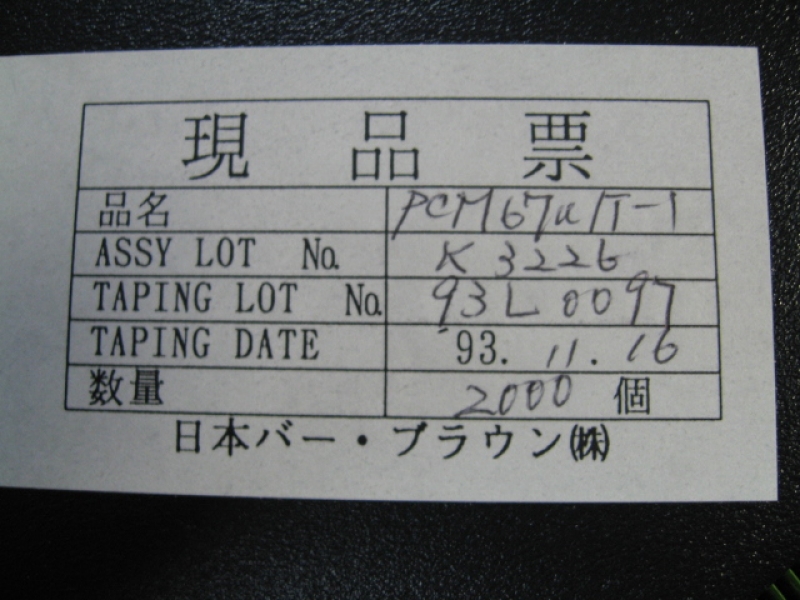 現品票
品名 PCM67u/T-1
ASSY LOT No. K 3226
TAPING LOT No. 93L0097
TAPING DATE '93. 11. 16
数量 2000 個
日本バー・ブラウン㈱